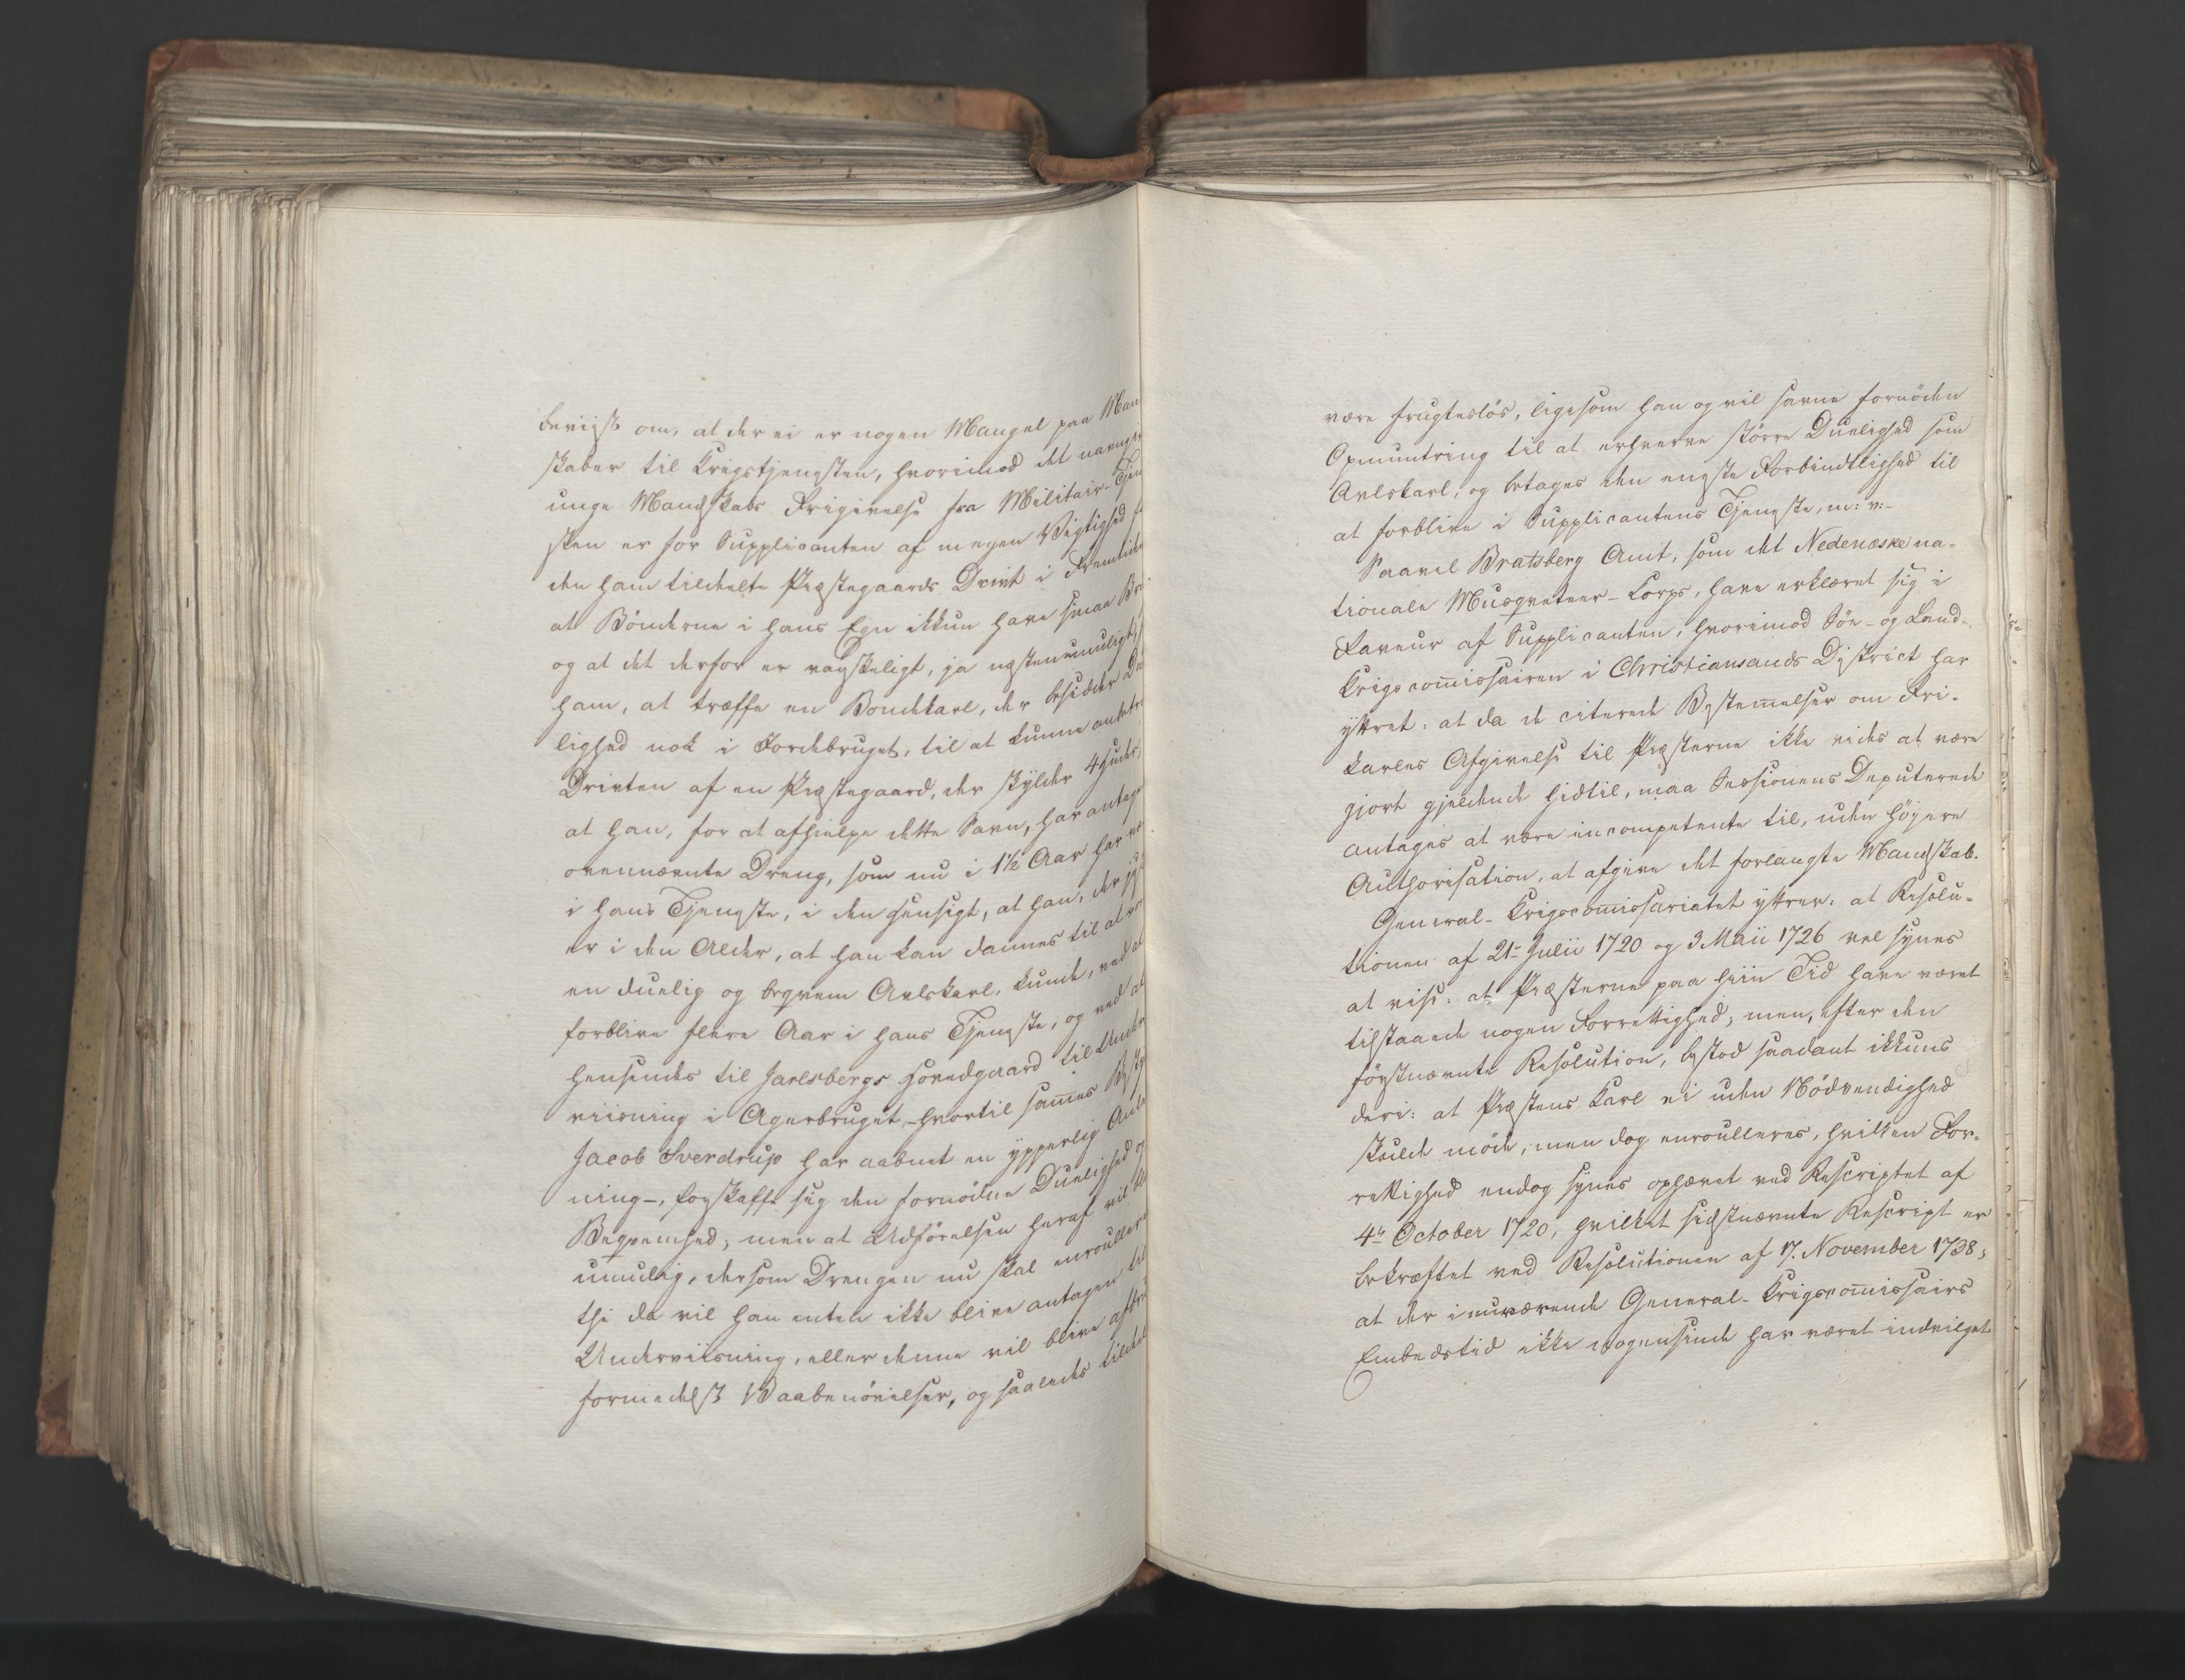 bevist om, at der ei er nogen Mangel paa Man
skaber til Krigstjenesten, hvorimod det navngiv
unge Mandskabs Frigivelse fra Militair-Tjen
sten er for Supplicanten af megen Vigtighed f
den ham tildeelte Præstegaards Drivt i Fremtide
at Bönderne i hans Egn ikkun have smaae Br
og at det derfor er vanskeligt, ja næsten umuligt f
ham, at træffe en Bondekarl, der besidder Du
lighed nok i Jordebruget, til at kunne anbetr
Drivten af en Præstegaard, der skylder 4 Huder,
at han, for at afhielpe dette Savn, har antage
ovennævnte Dreng, som nu i 1½ Aar har væ
i hans Tjeneste, i den Hensigt, at han, der ju
er i den Alder, at han kan dannes til at vor
en duelig og beqvem Avlskarl, kunde, ved at
forblive flere Aar i hans Tjeneste, og ved at
hensendes til Jarlsbergs Hovedgaard til Under
viisning i Agerbruget, - hvortil sammes Besty
Jacob Sverdrup har aabnet en ypperlig Anle
ning -, forskaffe sig den fornödne Duelighed og
Beqvemhed; men at Udförelsen heraf vil bl
umulig, dersom Drengen nu skal enroullere
thi da vil han enten ikke blive antagen til
Underviisning, eller denne vil blive afbru
formedelst Vaabenövelser, og saaledes tildeel
være frugteslös, ligesom han og vil savne fornöden
Opmuntring til at erhverve större Duelighed som
Avlskarl, og betages den eneste Forbindtlighed til
at forblive i Supplicantens Tjeneste, m: v:-
Saavel Bratsberg Amt, som det Nedenæske na-
tionale Musqueteer-Corps, have erklæret sig i
Faveur af Supplicanten; hvorimod Söe- og Land-
Krigscom̄issairen i Christiansands District har
yttret: at da de citerede Bestem̄elser om Fri-
karles Afgivelse til Præsterne ikke vides at være
gjort gjeldende hidtil, maa Sessionens Deputerede
antages at være incompetente til, uden höyere
Authorisation, at afgive det forlangte Mandskab.
General-Krigscom̄issariatet yttrer: at Resolu-
tionen af 21- Julii 1720 og 3 Maii 1726 vel synes
at vise: at Præsterne paa hiin Tid have været
tilstaaede nogen Forrettighed; men, efter den
förstnævnte Resolution, bestod saadant ikkuns
deri: at Præstens Karl ei uden Nödvendighed
skulde möde; men dog enroulleres, hvilken For-
rettighed endog synes ophævet ved Rescriptet af
4de October 1720, hvilket sidstnævnte Rescript er
bekræftet ved Resolutionen af 17. November 1738;
at der i nuværende General-Krigscom̄issairs
Embedstid ikke nogensinde har været indvilget